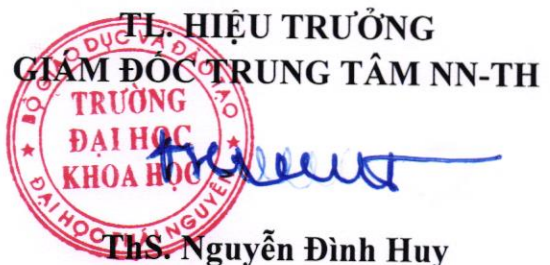 TL. HIỆU TRƯỞNG
GIÁM ĐỐC TRUNG TÂM NN-TH
BỘ GIÁO DỤC VÀ ĐÀO TẠO
TRƯỜNG
ĐẠI HỌC
KHOA HỌC
ĐẠI HỌC THÁI NGUYÊN
ThS. Nguyễn Đình Huy